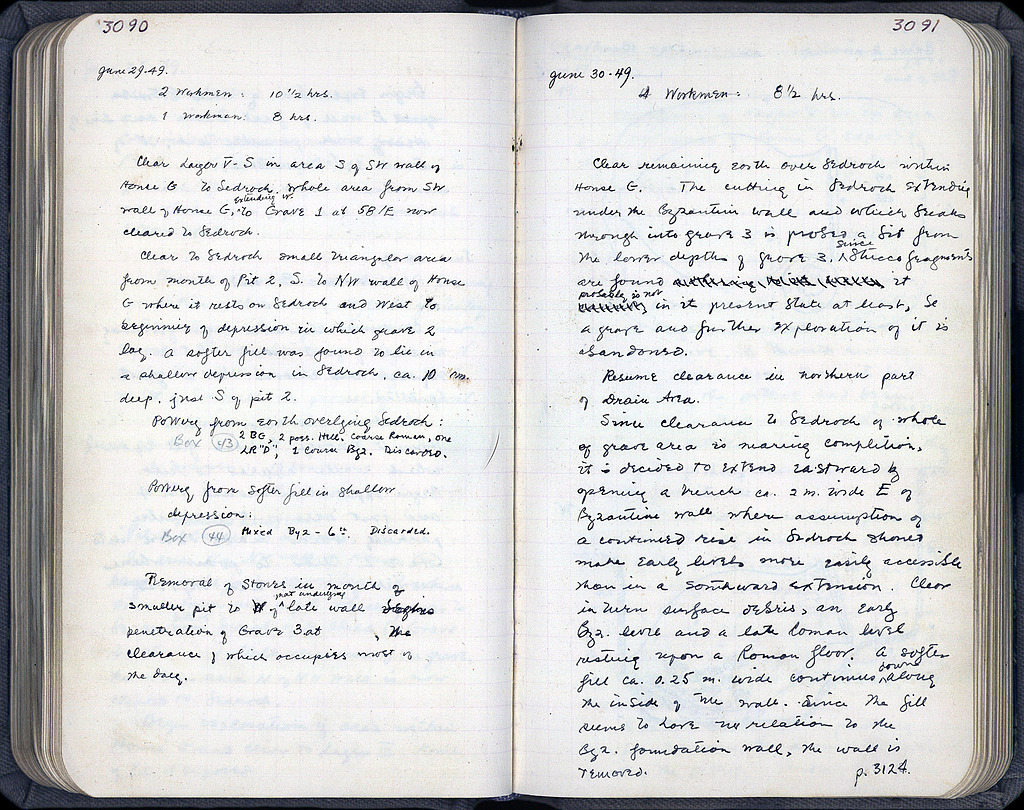 3090
June 29-49.
2 Workmen: 10 1/2 hrs.
1 Workman: 8 hrs.
Clear Layer V-S in area S of SW wall of
House G to bedrock. Whole area from SW
wall of House G, extending W. to Grave 1 at 58/E now
cleared to bedrock.
Clear to bedrock small triangular area
from mouth of Pit 2, S. to NW wall of House
G where it rests on bedrock and West to
beginning of depression in which grave 2
lay. A softer fill was found to lie in
a shallow depression in bedrock, ca. 10 cm.
deep, just S of pit 2.
Pottery from earth overlying bedrock:
Box 43 2 BG, 2 poss. Hell. Coarse Roman, one
LR "D", 1 coarse Byz. Discard.
Pottery from softer fill in shallow
depression:
Box 44 Mixed Byz - 6th. Discarded.
Removal of stones in mouth of
smaller pit to W of that underlying late wall begins
penetration of Grave 3 at , the
clearance of which occupies most of
the day.
3091
June 30-49.
4 Workmen: 8 1/2 hrs.
Clear remaining earth over bedrock within
House G. The cutting in bedrock extending
under the Byzantine wall and which breaks
through into grave 3 is probed a bit from
the lower depths of grave 3. Since stucco fragments
are found it
probably is not in its present state at least, be
a grave and further exploration of it is
abandoned.
Resume clearance in northern part
of Drain Area.
Since clearance to bedrock of whole
of grave area is nearing completion,
it is decided to extend eastward by
opening a trench ca. 2 m. wide E of
Byzantine wall where assumption of
a continued rise in bedrock should
make early levels more easily accessible
than in a southward extension. Clear
in turn surface debris, an early
Byz. level and a late Roman level
resting upon a Roman floor. A softer
fill ca. 0.25 m. wide continues down along
the inside of the wall. Since the fill
seems to have no relation to the
Byz. foundation wall, the wall is
removed. p. 3124.